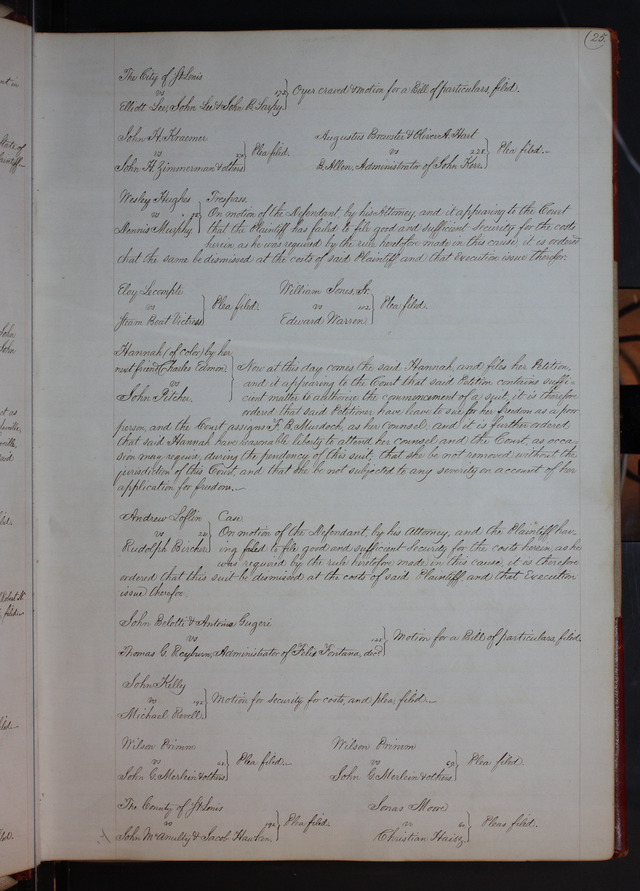 25
The City of St Louis
vs
Elliott Lee, John Lee & John R. Sarpy } Oyer craved & motion for a Bill of particulars, filed.
John H. Kraemer
vs
John H. Zimmerman & others } Plea filed.
Augustus Brewster & Oliver A. Hart
vs 228
B. Allen, Administrator of John Kerr } Plea filed.
Wesley Hughes
vs
Dennis Murphy
Trespass.
On motion of the Defendant, by his Attorney, and it appearing to the Court
that the Plaintiff has failed to file good and sufficient Security for the costs
herein, as he was required by the rule heretofore made in this cause, it is ordered
that the same be dismissed at the costs of said Plaintiff and that Execution issue therefor.
Eloy Lecompte
vs
Steam Boat } Plea filed.
William Jones, Jr.
vs
Edward Warren } Plea filed.
Hannah (of color) by her
next friend Charles Edmon
vs
John Pilcher
Now at this day comes the said Hannah, and files her Petition,
and it appearing to the Court that said Petition contains suffi-
cient matter to authorize the commencement of a suit, it is therefore
ordered that said Petitioner have leave to sue for her freedom as a poor
person, and the Court assigns F. B. Murdoch, as her counsel; and it is further ordered
that said Hannah have reasonable liberty to attend her counsel and the Court, as occa-
sion may require, during the pendency of this suit, that she be not removed without the
jurisdiction of this Court, and that she be not subjected to any severity on account of her
application for freedom.
Andrew Loflin
vs
Rudolph Bircher
Case
On motion of the Defendant, by his Attorney, and the Plaintiff hav-
ing failed to file good and sufficient Security for the costs herein, as he
was required by the rule heretofore made in this cause, it is therefore
ordered that this suit be dismissed at the costs of said Plaintiff, and that Execution
issue therefor.
John Bolotti & Antoine Gugeri
vs
Thomas C. Reyburn, Administrator of Felix Fontana, decd } Motion for a Bill of particulars, filed.
John Kelly
vs
Michael Revell } Motion for security for costs, and plea filed.
Wilson Primm
vs
John C. Merlein & others } Plea filed.
Wilson Primm
vs
John C. Merlein & others } Plea filed.
The County of St Louis
vs
John McAnulty & Jacob Hawken } Plea filed.
Jonas Moore
vs
Christian } Pleas filed.